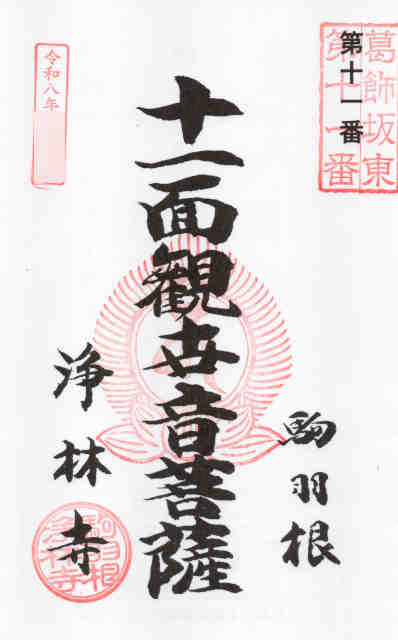 葛飾坂東
第十一番
第十一番
駒羽根
十一面観世音菩薩
令和八年
浄林寺